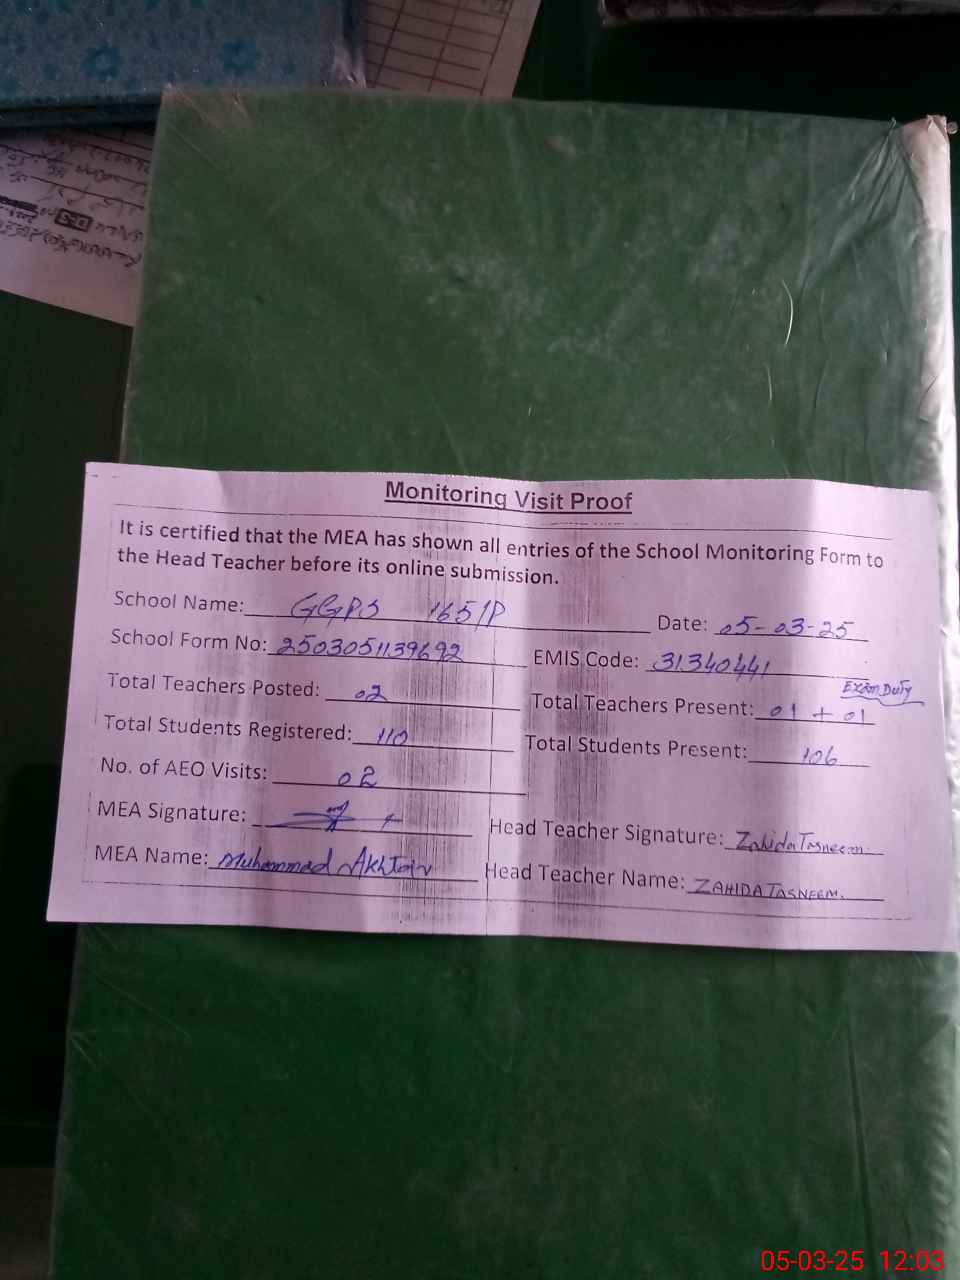 Monitoring Visit Proof
It is certified that the MEA has shown all entries of the School Monitoring Form to
the Head Teacher before its online submission.
School Name: GGPS 165/P Date: 05-03-25
School Form No: 2503051139692 EMIS Code: 31340441
Exam Duty
Total Teachers Posted: 02 Total Teachers Present: 01 + 01
Total Students Registered: 110 Total Students Present: 106
No. of AEO Visits: 02
MEA Signature: Head Teacher Signature: Zahida Tasneem.
MEA Name: Muhammad Akhtar Head Teacher Name: ZAHIDA TASNEEM.
05-03-25 12:03